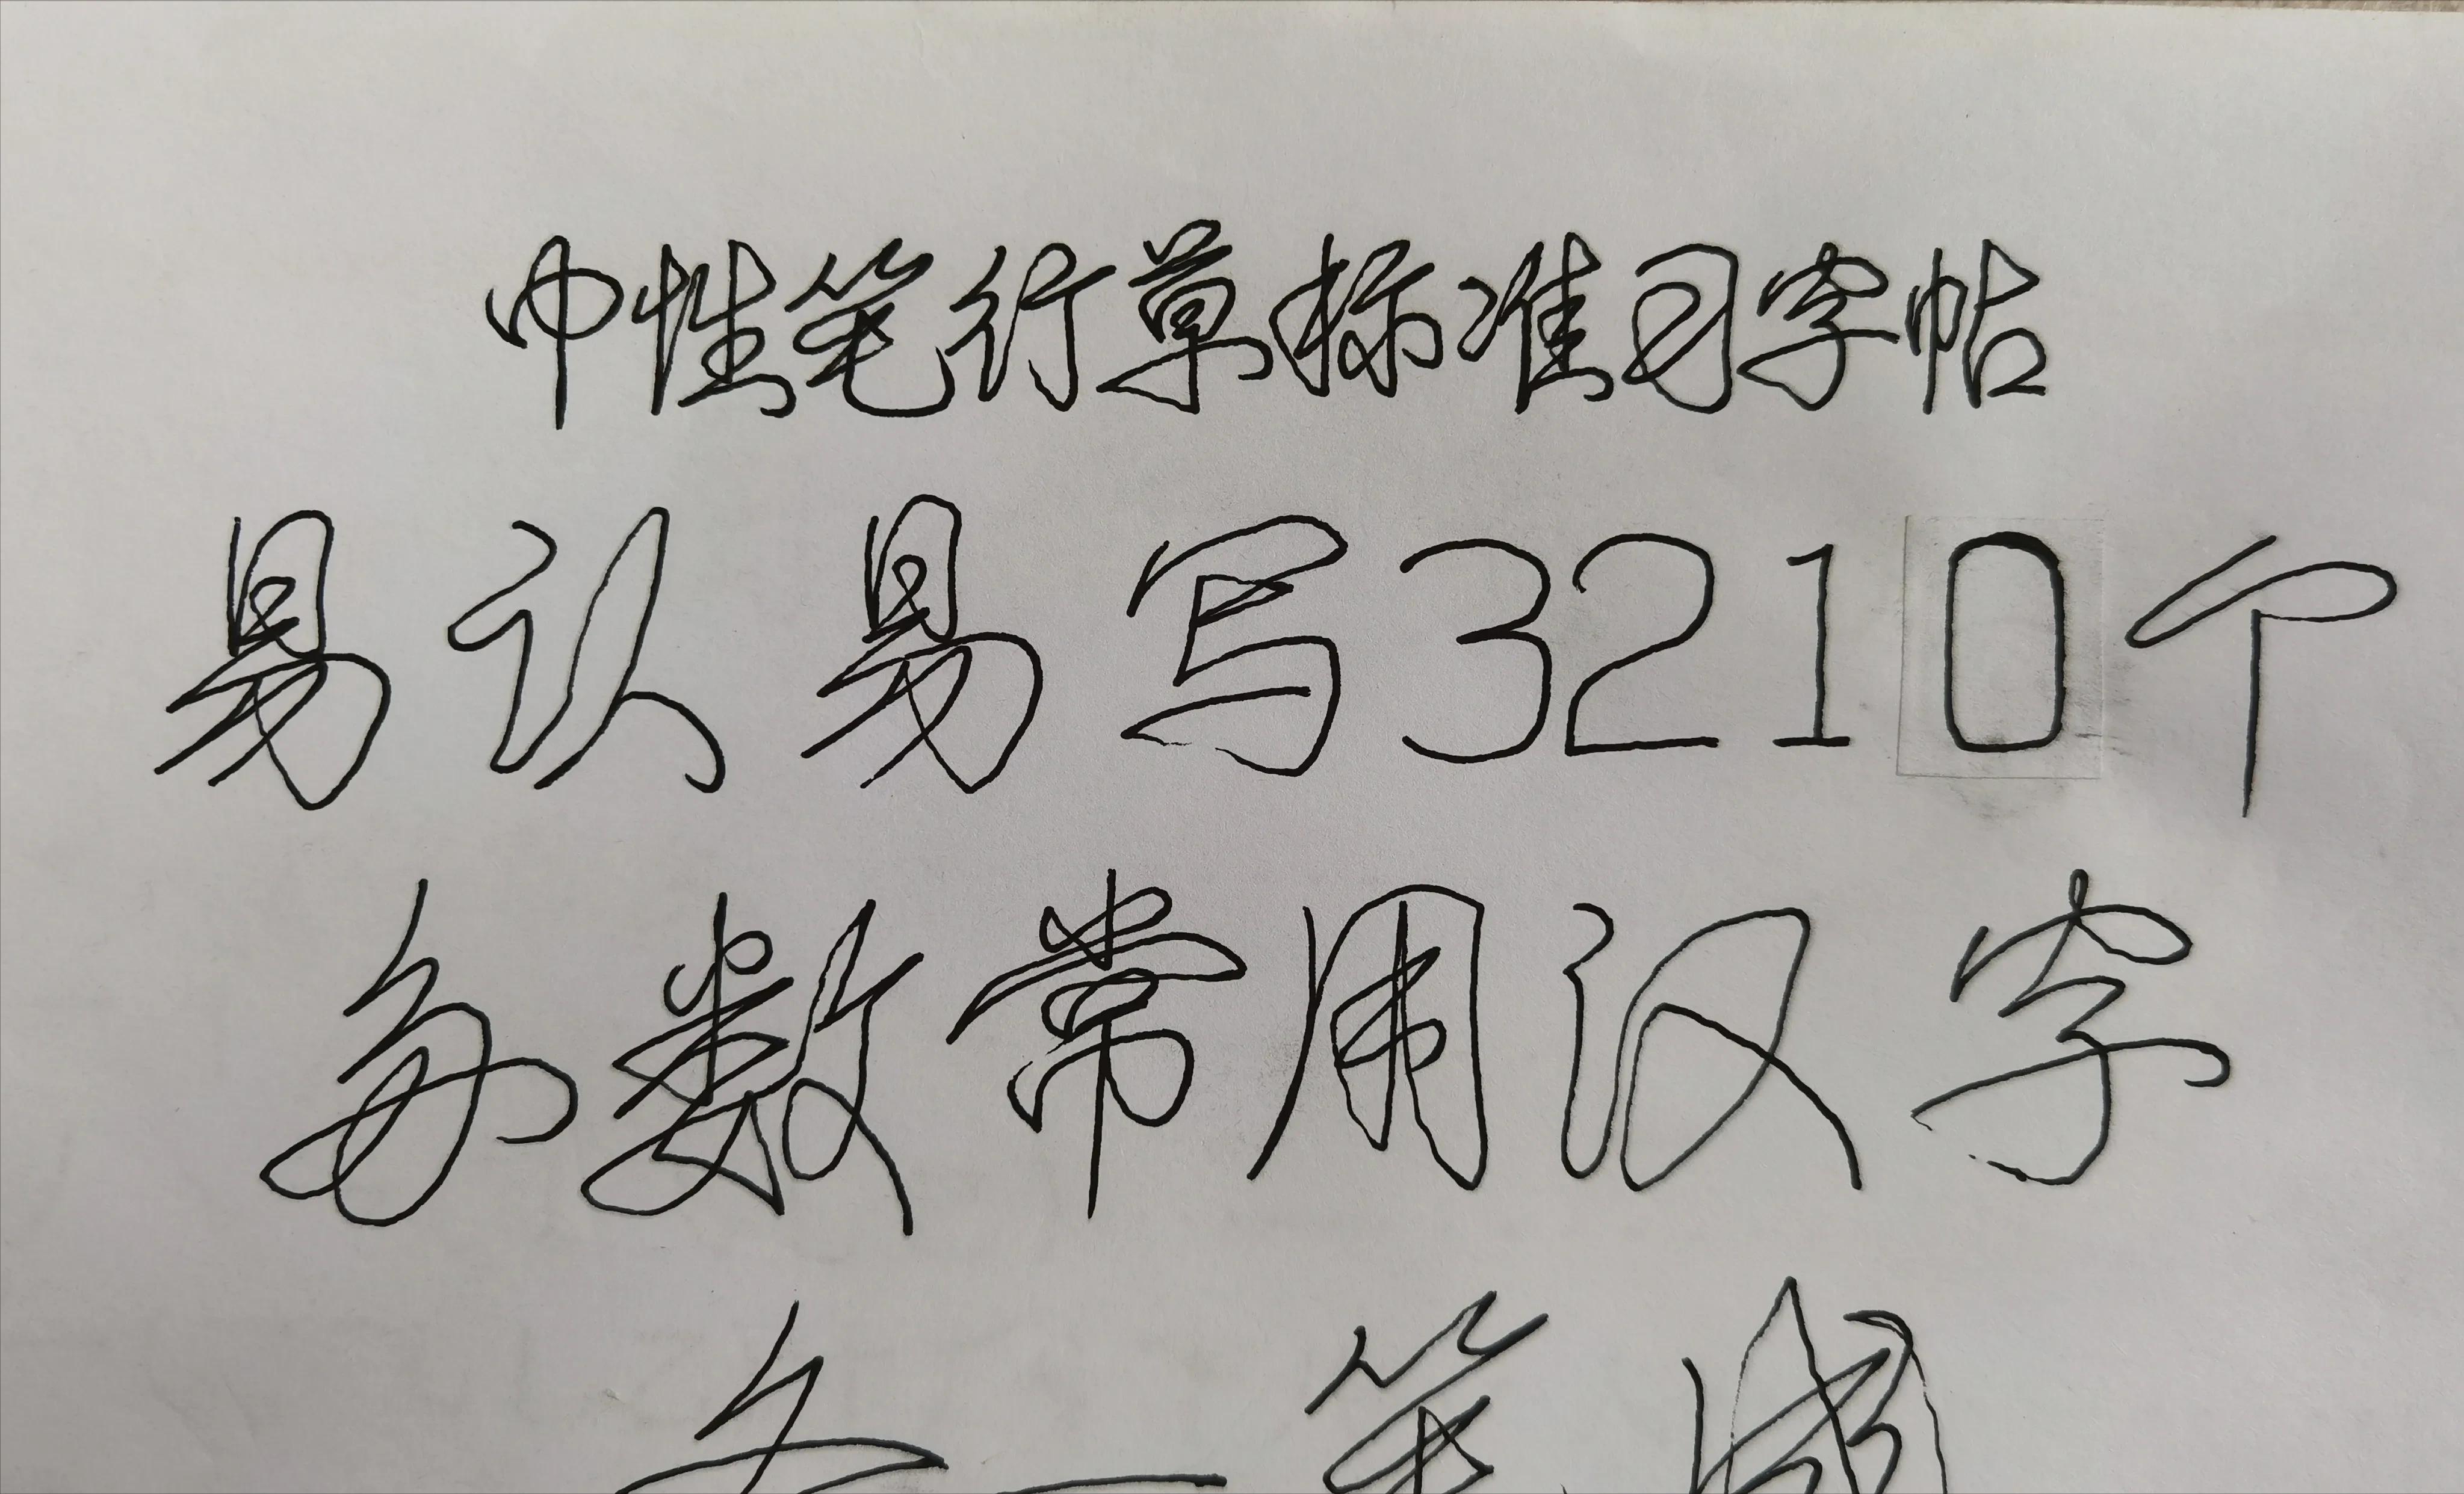 中性笔行草标准习字帖
易认易写3210个
多数常用汉字
一笔